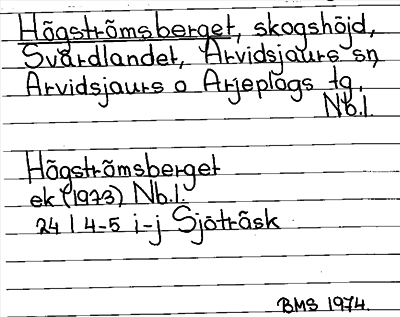 Högströmsberget, skogshöjd,
Svärdlandet, Arvidsjaurs sn,
Arvidsjaurs o Arjeplogs tg,
Nb.l.
Högströmsberget
ek (1973) Nb.l.
24 I 4-5 i-j Sjöträsk
BMS 1974.